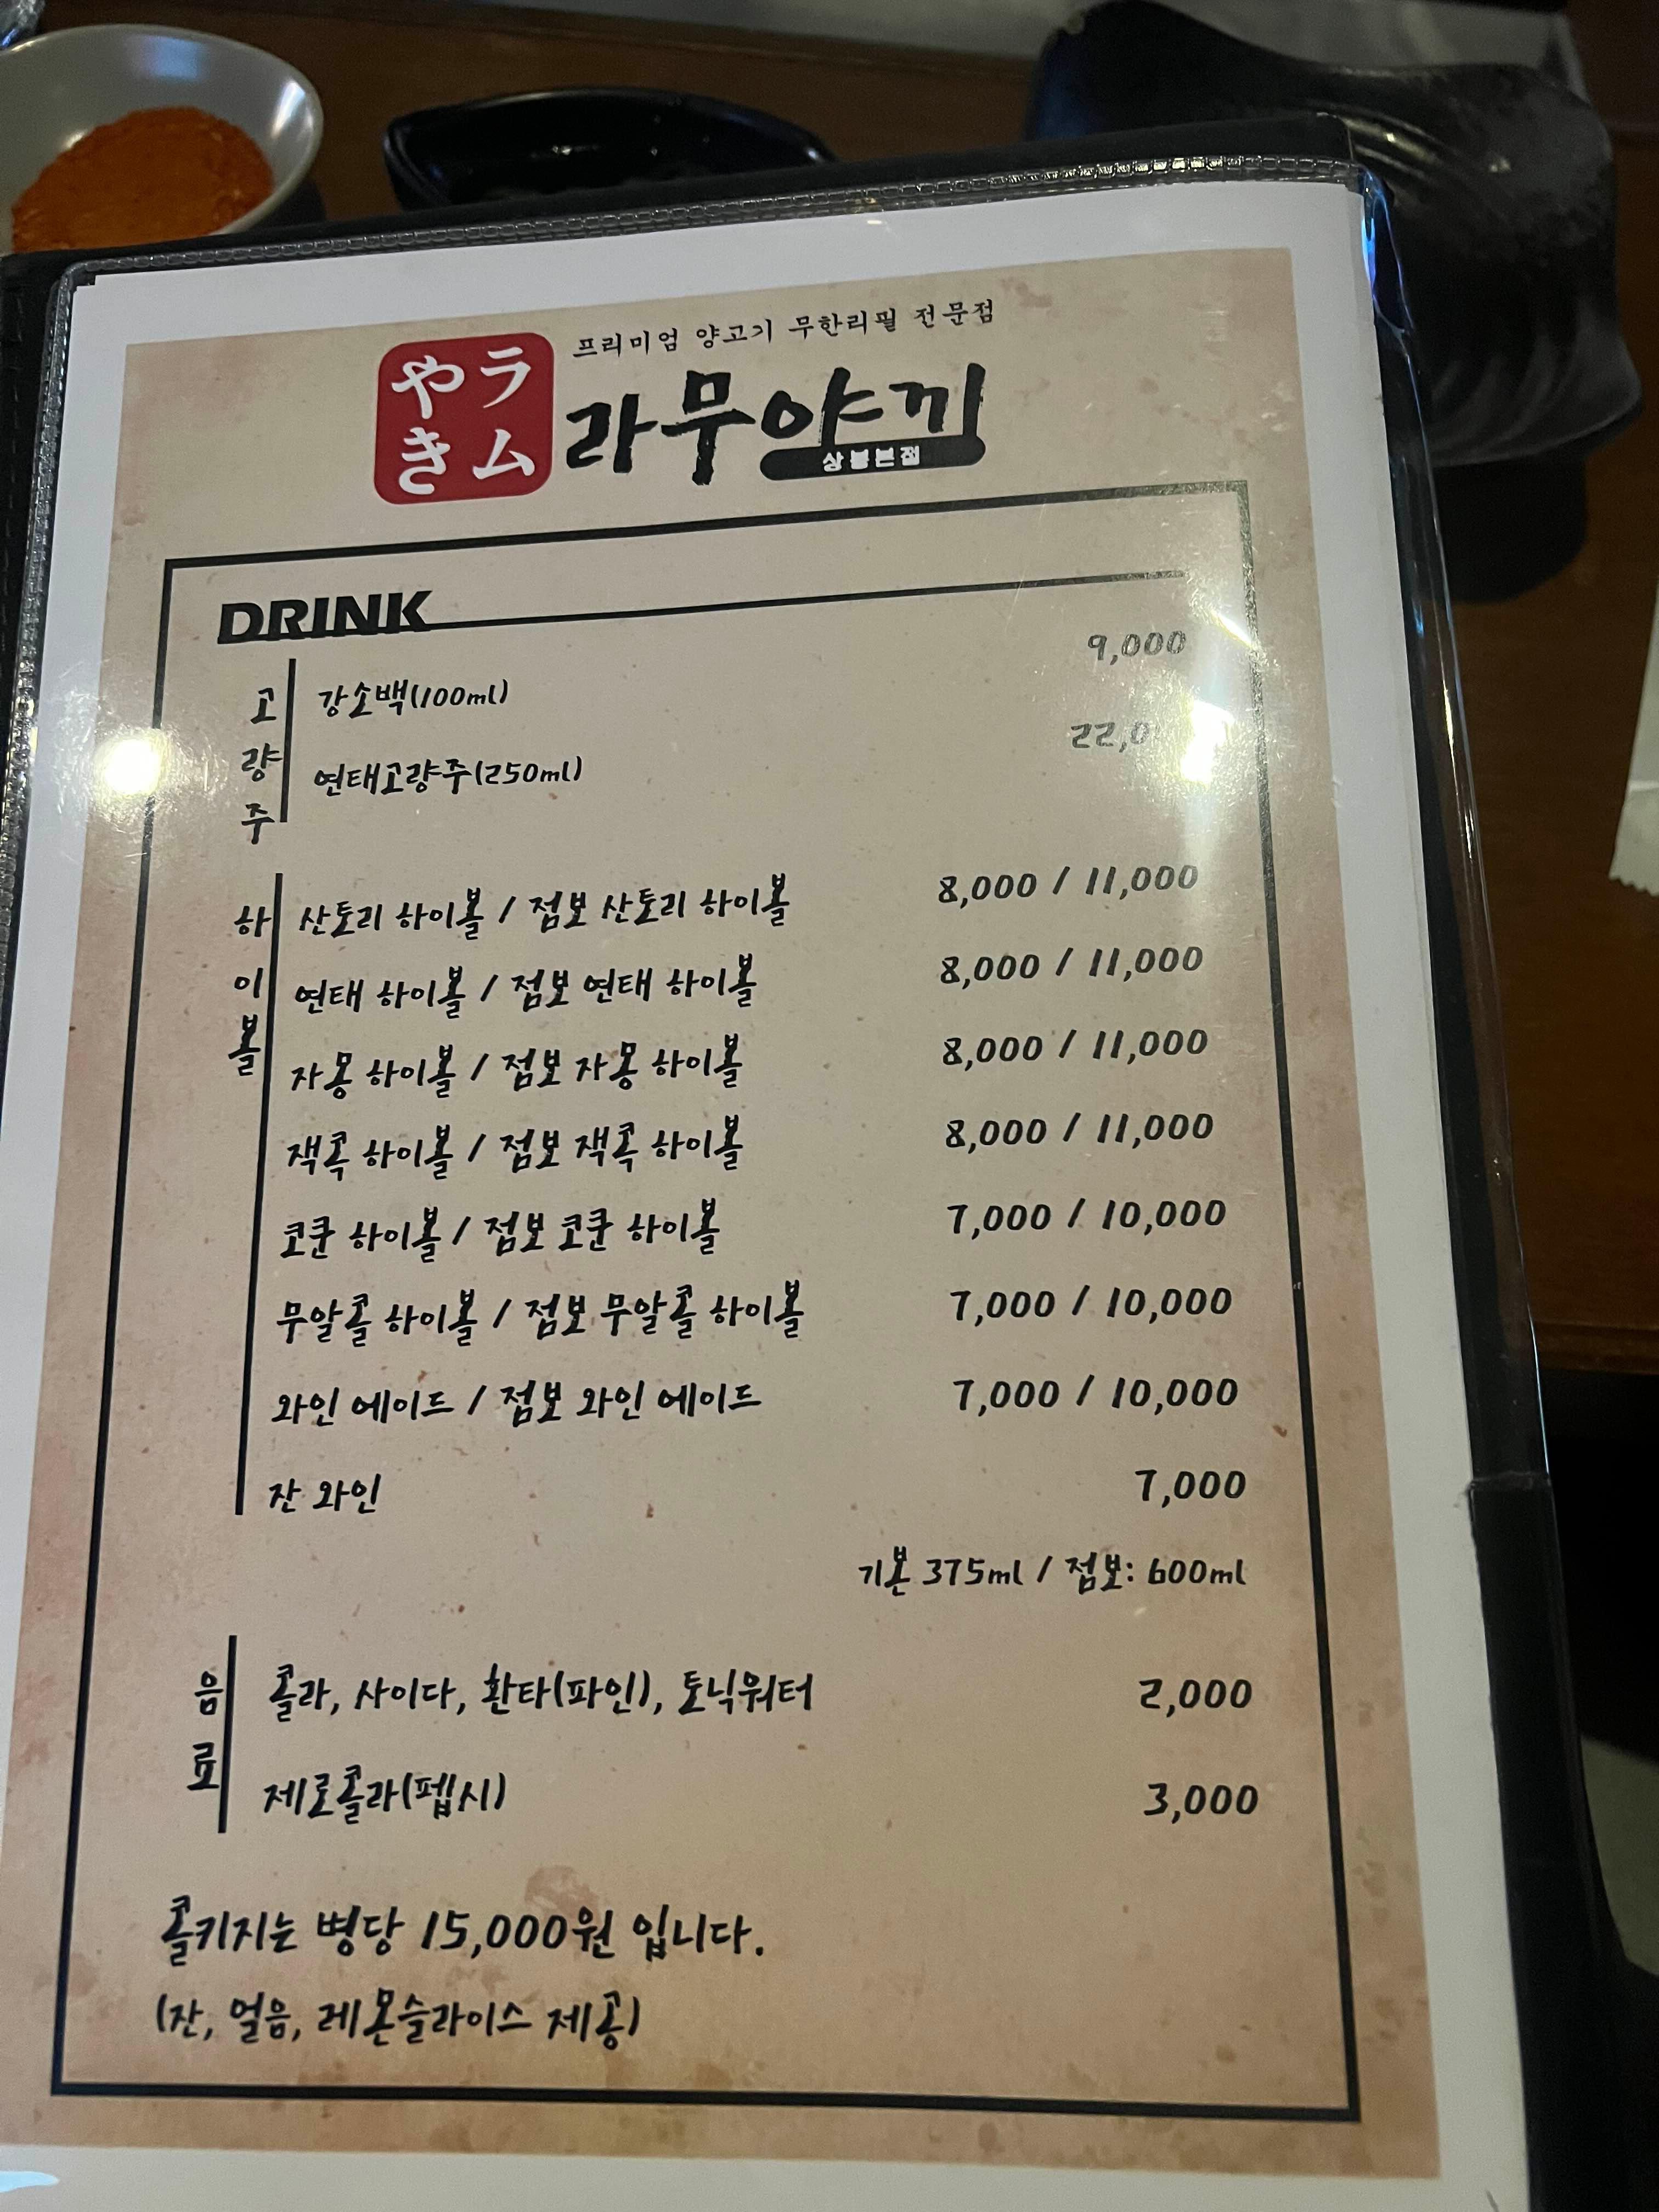 프리미엄 양고기 무한리필 전문점
やラ
きム
라무야끼
상봉본점
DRINK
고량주
강소백(100ml) 9,000
연태고량주(250ml)
하이볼
산토리 하이볼 / 점보 산토리 하이볼 8,000 / 11,000
연태 하이볼 / 점보 연태 하이볼 8,000 / 11,000
자몽 하이볼 / 점보 자몽 하이볼 8,000 / 11,000
잭콕 하이볼 / 점보 잭콕 하이볼 8,000 / 11,000
코쿤 하이볼 / 점보 코쿤 하이볼 7,000 / 10,000
무알콜 하이볼 / 점보 무알콜 하이볼 7,000 / 10,000
와인 에이드 / 점보 와인 에이드 7,000 / 10,000
잔 와인 7,000
기본 375ml / 점보: 600ml
음료
콜라, 사이다, 환타(파인), 토닉워터 2,000
제로콜라(펩시) 3,000
콜키지는 병당 15,000원 입니다.
(잔, 얼음, 레몬슬라이스 제공)